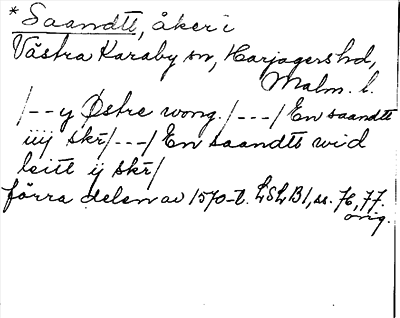 *Saandtt, åker i
Västra Karaby sn, Harjagers hd,
Malm. l.
/--y Østre wong./---/En saandtt
iiij skr/---/En saandtt wid
leitt ij skr/
förra delen av 1570-t. LSLB1, ss. 76, 77.
orig.